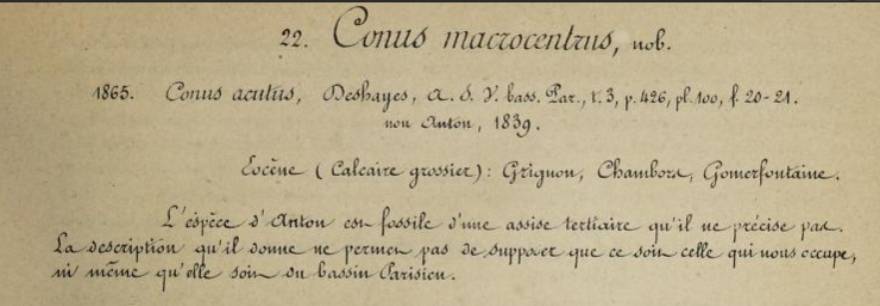 22. Conus macrocentrus, nob.
1865. Conus acutus, Deshayes, A. S. V. bass. Par., t. 3, p. 426, pl. 100, f. 20-21.
non Anton, 1839.
Eocène (Calcaire grossier): Grignon, Chambors, Gomerfontaine.
L'espèce d'Anton est fossile d'une assise tertiaire qu'il ne précise pas.
La description qu'il donne ne permet pas de supposer que ce soit celle qui nous occupe,
ni même qu'elle soit du bassin Parisien.